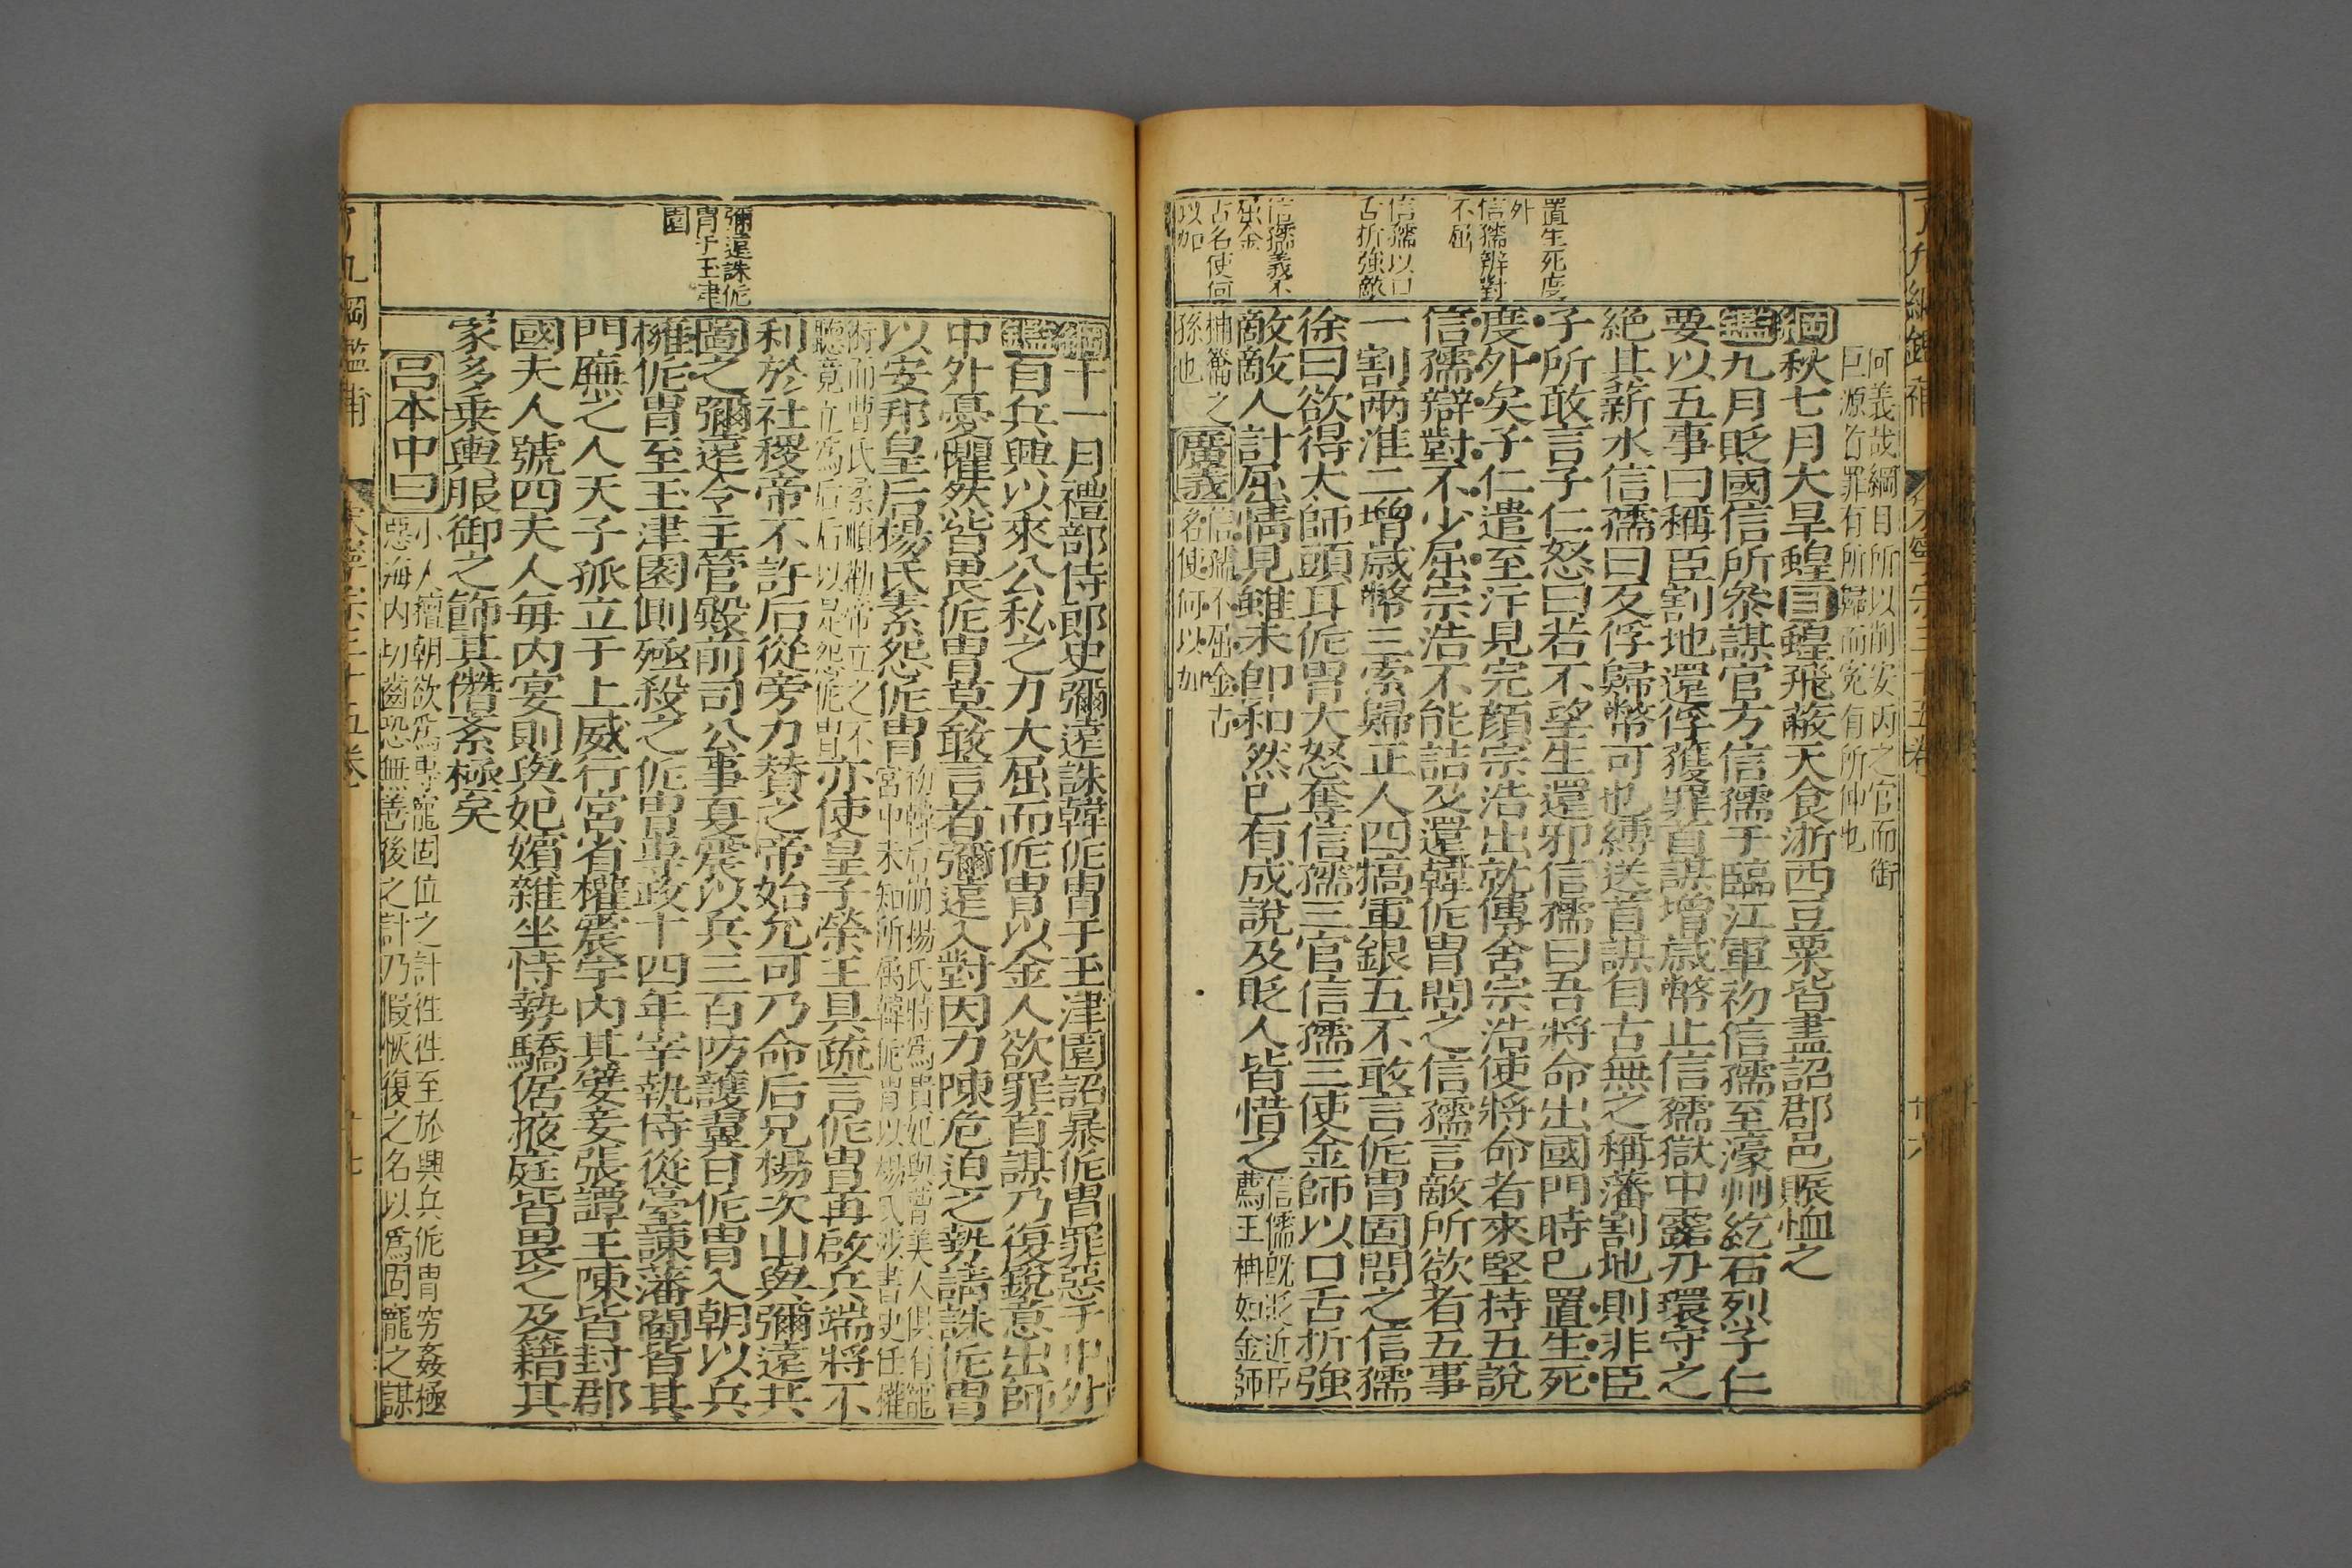 置生死度
外
信孺辨對
不屈
信孺以口
舌折強敵
信孺義不
屈金
古名使何
以加
何義哉綱目所以削安丙之官而銜
巨源名罪有所歸而冤有所伸也
綱秋七月大旱蝗目蝗飛蔽天食浙西豆粟皆盡詔郡邑賑恤之
鑑九月貶國信所參謀官方信孺于臨江軍初信孺至濠州紇石烈子仁
要以五事曰稱臣割地還俘獲罪首謀增歲幣止信孺獄中露刃環守之
絕其薪水信孺曰反俘歸幣可也縛送首謀自古無之稱藩割地則非臣
子所敢言子仁怒曰若不望生還邪信孺曰吾將命出國門時已置生死
度外矣子仁遣至汴見完顏宗浩出就傳舍宗浩使將命者來堅持五說
信孺辯對不少屈宗浩不能詰及還韓侂冑問之信孺言敵所欲者五事
一割兩淮二增歲幣三索歸正人四犒軍銀五不敢言侂冑固問之信孺
徐曰欲得太師頭耳侂冑大怒奪信孺三官信孺三使金師以口舌折強
敵敵人計屈情見雖未卽和然巳有成說及貶人皆惜之信儒旣貶近臣
薦王柟如金師
柟
倫之
孫也
廣義信孺不屈金古
名使何以加
了凡綱鑑補
宋寧宗三十五卷
廿六
彌遠誅侂
冑于玉津
園
綱十一月禮部侍郎史彌遠誅韓侂冑于玉津園詔暴侂冑罪惡于中外
鑑自兵興以來公私之力大屈而侂冑以金人欲罪首謀乃復銳意出師
中外憂懼然皆畏侂冑莫敢言者彌遠入對因力陳危迫之勢請誅侂冑
以安邦皇后楊氏素怨侂冑初韓后崩楊氏將爲貴妃與曹美人俱有寵
宮中未知所屬韓侂冑以楊氏涉書史任權
術而曹氏柔順勸帝立之不
聽竟立爲后后以是怨侂冑亦使皇子榮王具疏言侂冑再啟兵端將不
利於社稷帝不許后從旁力贊之帝始允可乃命后兄楊次山與彌遠共
圖之彌遠令主管殿前司公事夏震以兵三百防護翼日侂冑入朝以兵
擁侂冑至玉津園側殛殺之侂冑專政十四年宰執侍從臺諫藩閫皆其
門廡之人天子孤立于上威行宮省權震宇內其嬖妾張譚王陳皆封郡
國夫人號四夫人每內宴則與妃嬪雜坐恃勢驕倨掖庭皆畏之及籍其
家多乘輿服御之飾其僭紊極矣
呂本中曰小人擅朝欲爲專寵固位之計往往至於興兵侂冑窮姦極
惡海內切齒恐無善後之計乃假恢復之名以爲固寵之謀
了凡綱鑑補
宋寧宗三十五卷
十七